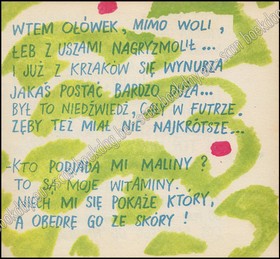 WTEM OŁÓWEK, MIMO WOLI,
ŁEB Z USZAMI NAGRYZMOLIŁ...
I JUŻ Z KRZAKÓW SIĘ WYNURZA
JAKAŚ POSTAĆ BARDZO DUŻA...
BYŁ TO NIEDŹWIEDŹ, CAŁY W FUTRZE.
ZĘBY TEŻ MIAŁ NIE NAJKRÓTSZE...
-KTO PODJADA MI MALINY?
TO SĄ MOJE WITAMINY.
NIECH MI SIĘ POKAŻE KTÓRY,
A OBEDRĘ GO ZE SKÓRY!